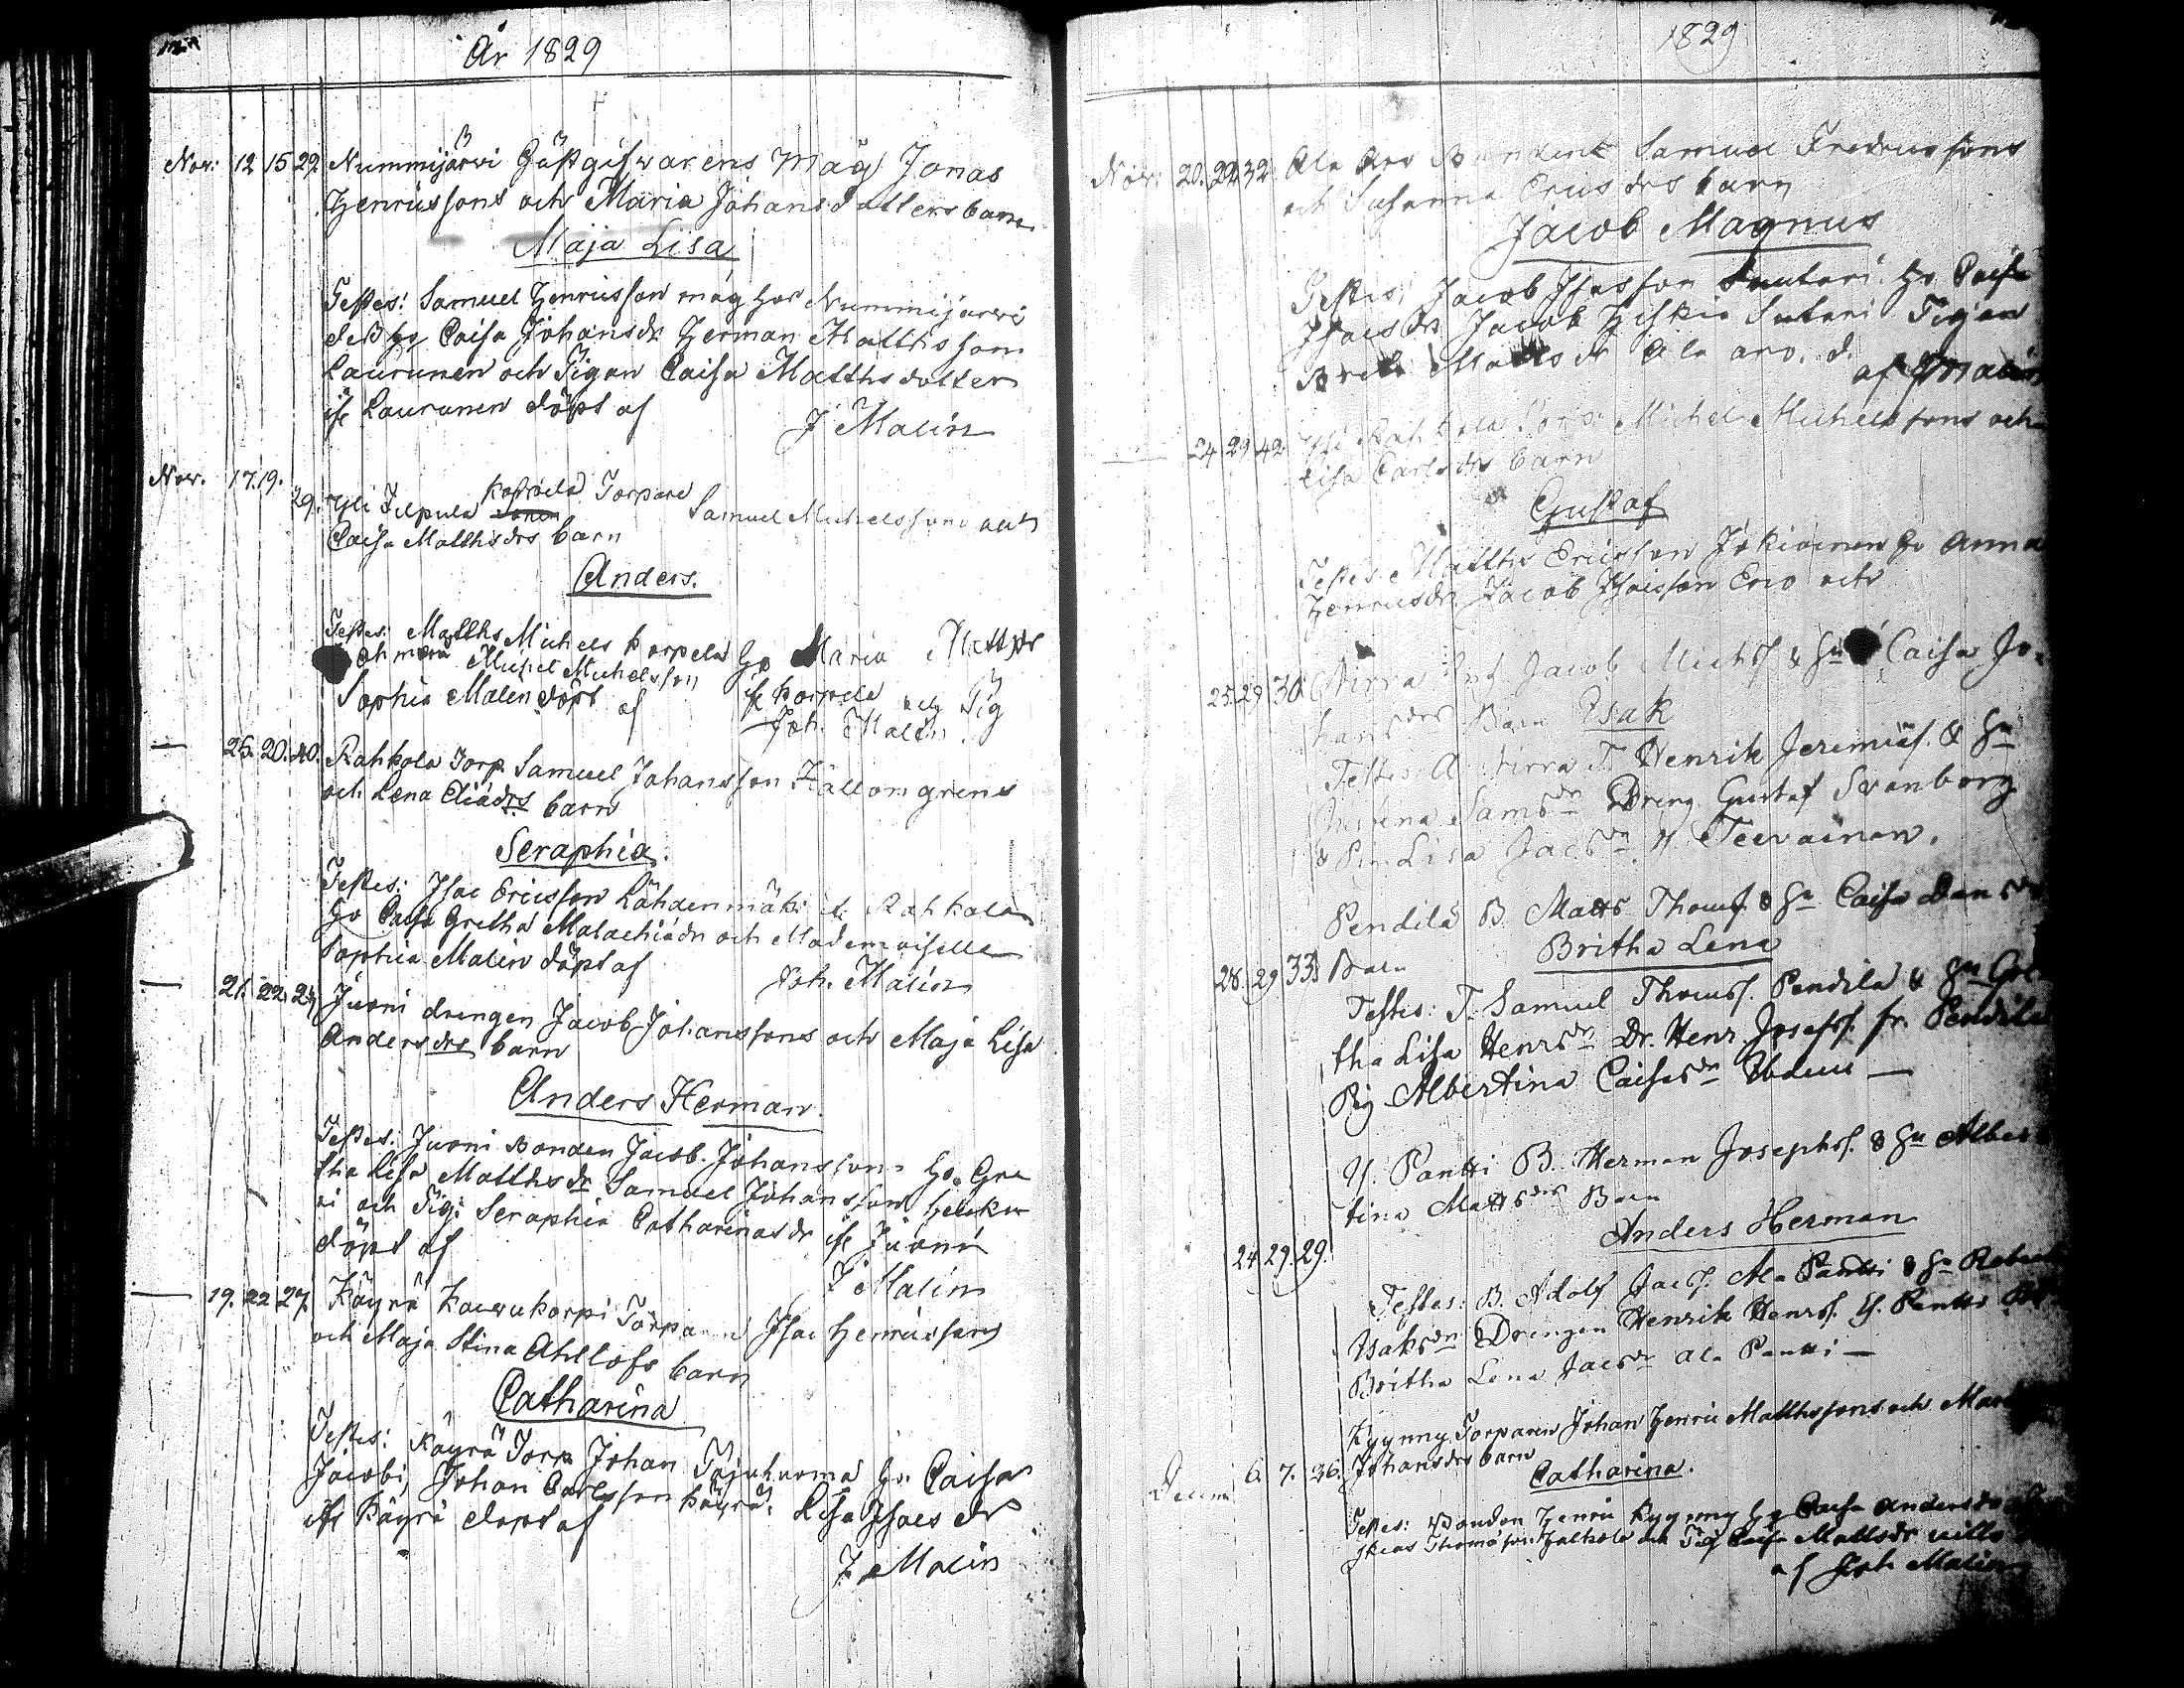 År 1829
Nov: 12 15 29. Nummijärvi Gästgifwarens Måg Jonas
Henricssons och Maria Johansdotters barn
Maja Lisa
Testes: Samuel Henricsson måg hos Nummijärvi
dess ho Caisa Johansdr Herman Matthsson
Laurunen och Pigan Caisa Matthsdotter
ifr Laurunen döpt af
J Malin
Nov. 17. 19. 29. Yli Filpula Torpare Samuel Michelssons och
Caisa Matthsdrs barn
Anders.
Testes: Matths Michels Korpela Ho Maria Mattsdr
Michel Michelsson ifr Korpela och Pig
Sophia Malin döpt af Joh. Malin
25. 20. 40. Rahkola Torp. Samuel Johansson Källomgrens
och Lena Eliædrs barn
Seraphia.
Testes: Isac Ericsson Lähdenmäki ifr Rahkola
Ho Caisa Gretha Malachiædr och Mademoiselle
Sophia Malin döpt af
Joh. Malin
21. 22. 24 Juoni drengen Jacob Johanssons och Maja Lisa
Andersdrs barn
Anders Herman.
Testes: Juoni Bonden Jacob Johansson Ho. Gre
tha Lisa Matthsdr Samuel Johansson Heikur
ri och Pig: Seraphia Catharinasdr ifr Juoni
döpt af
J Malin
19. 22 27. Käyrä Kauvukorpi Torparen Isac Henricssons
och Maja Stina Ahllofs barn
Catharina
Testes: Käyrä Torp. Johan Pajuluoma Ho. Caisa
Jacobi, Johan Carlsson Käyrä. Lisa Isacs dr
ifr Käyrä döpt af
J. Malin
1829
Nov: 20. 22. 32. Ala Aro Bonden Samuel Fredricssons
och Susanna Ericsdrs barn
Jacob Magnus
Testes: Jacob Isacsson Luutari Ho Caisa
Isacsdr Jacob Hiskia Sutari Pigan
Brita Mattsdr Ala aro. d.
af J Malin
24 29 42. Yli Rahkola Torp: Michel Michelssons och
Lisa Carlsdrs barn
Gustaf
Testes: Matths Ericsson Jokioinen Ho Anna
Henricsdr Jacob Isacsson Ero och
25. 29 30. Jacob Michss. & Hu Caisa Jo-
hansdrs Barn Isak
Testes: T. Henrik Jeremiæs. & Hu
Sams dr Dreng Gustaf Svanborg
& Pin Lisa Jacsdr Y Teevainen.
Pendilä B. Matts Thomss. & Hu Caisa Dansdrs
28. 29 33. Barn Britha Lena
Testes: T. Samuel Thomss. Pendilä & Hu Gre
tha Lisa Henrsdr Dr. Henr. Josefss. fr. Pendilä
Pig Albertina Caisasdr
Y. Pantti B. Herman Josephss. & Hu Alber
tina Mattsdrs Barn
Anders Herman
24 29. 29.
Testes: B. Adolf Jacss. Ala Pantti & Hu
Isaksdr Drengen Henrik Henrss. Y. Pantti
Britha Lena Jacsdr Ala Pantti —
Kyyny Torparen Johan Henric Matthssons och
Decem 6. 7. 26. Johansdrs barn
Catharina.
Testes: Bonden Henric Kyyny Ho Caisa Andersdr
Thomasson och Pig Caisa Mattsdr
af Joh Malin